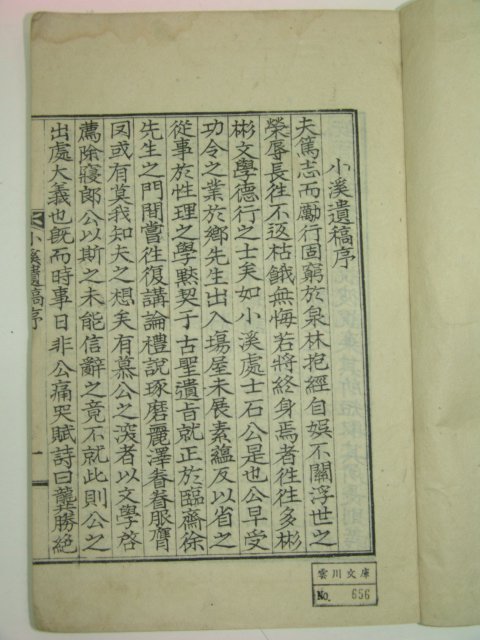 小溪遺稿序
夫篤志而勵行固窮於泉林抱經自娛不關浮世之
榮辱長往不返枯餓無悔若將終身焉者往往多彬
彬文學德行之士矣如小溪處士石公是也公早受
功令之業於鄉先生出入場屋未展素蘊反以省之
從事於性理之學默契于古聖遺旨就正於臨齋徐
先生之門間嘗往復講論禮說琢磨麗澤眷眷服膺
因或有莫我知夫之想矣有慕公之深者以文學啓
薦除寢郎公以斯之未能信辭之竟不就此則公之
出處大義也旣而時事日非公痛哭賦詩曰龔勝絶
小溪遺稿序
一
雲川文庫
No. 656